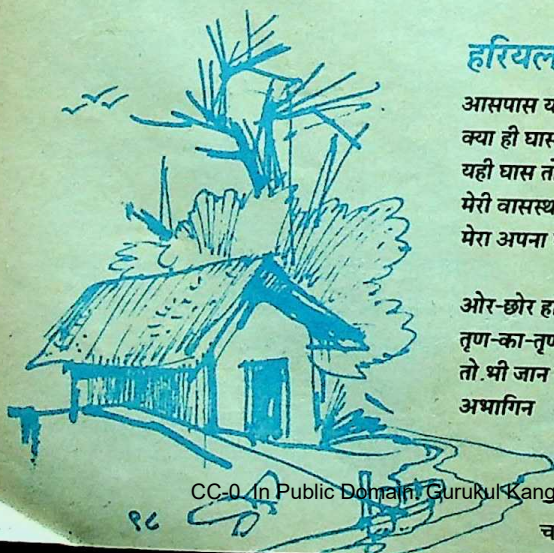 हरियल
आसपास य
क्या ही घास
यही घास तो
मेरी वासस्थ
मेरा अपना
ओर-छोर ह
तृण-का-तृण
तो भी जान
अभागिन
CC-0. In Public Domain. Gurukul Kang
१८
च